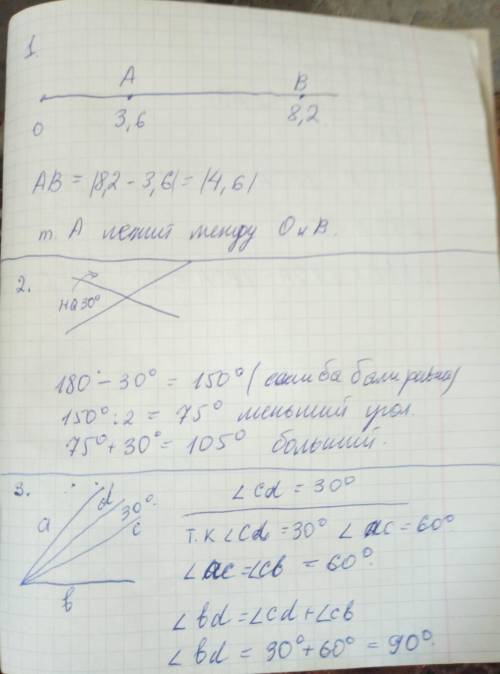 1.
A B
O 3,6 8,2
AB = |8,2 - 3,6| = |4,6|
т. A лежит между O и B.
2.
на 30°
180° - 30° = 150° (если ба были равны)
150° : 2 = 75° меньший угол.
75° + 30° = 105° больший.
3.
d 30°
a c
b
∠cd = 30°
т.к ∠cd = 30° ∠ac = 60°
∠ac = ∠cb = 60°.
∠bd = ∠cd + ∠cb
∠bd = 30° + 60° = 90°.